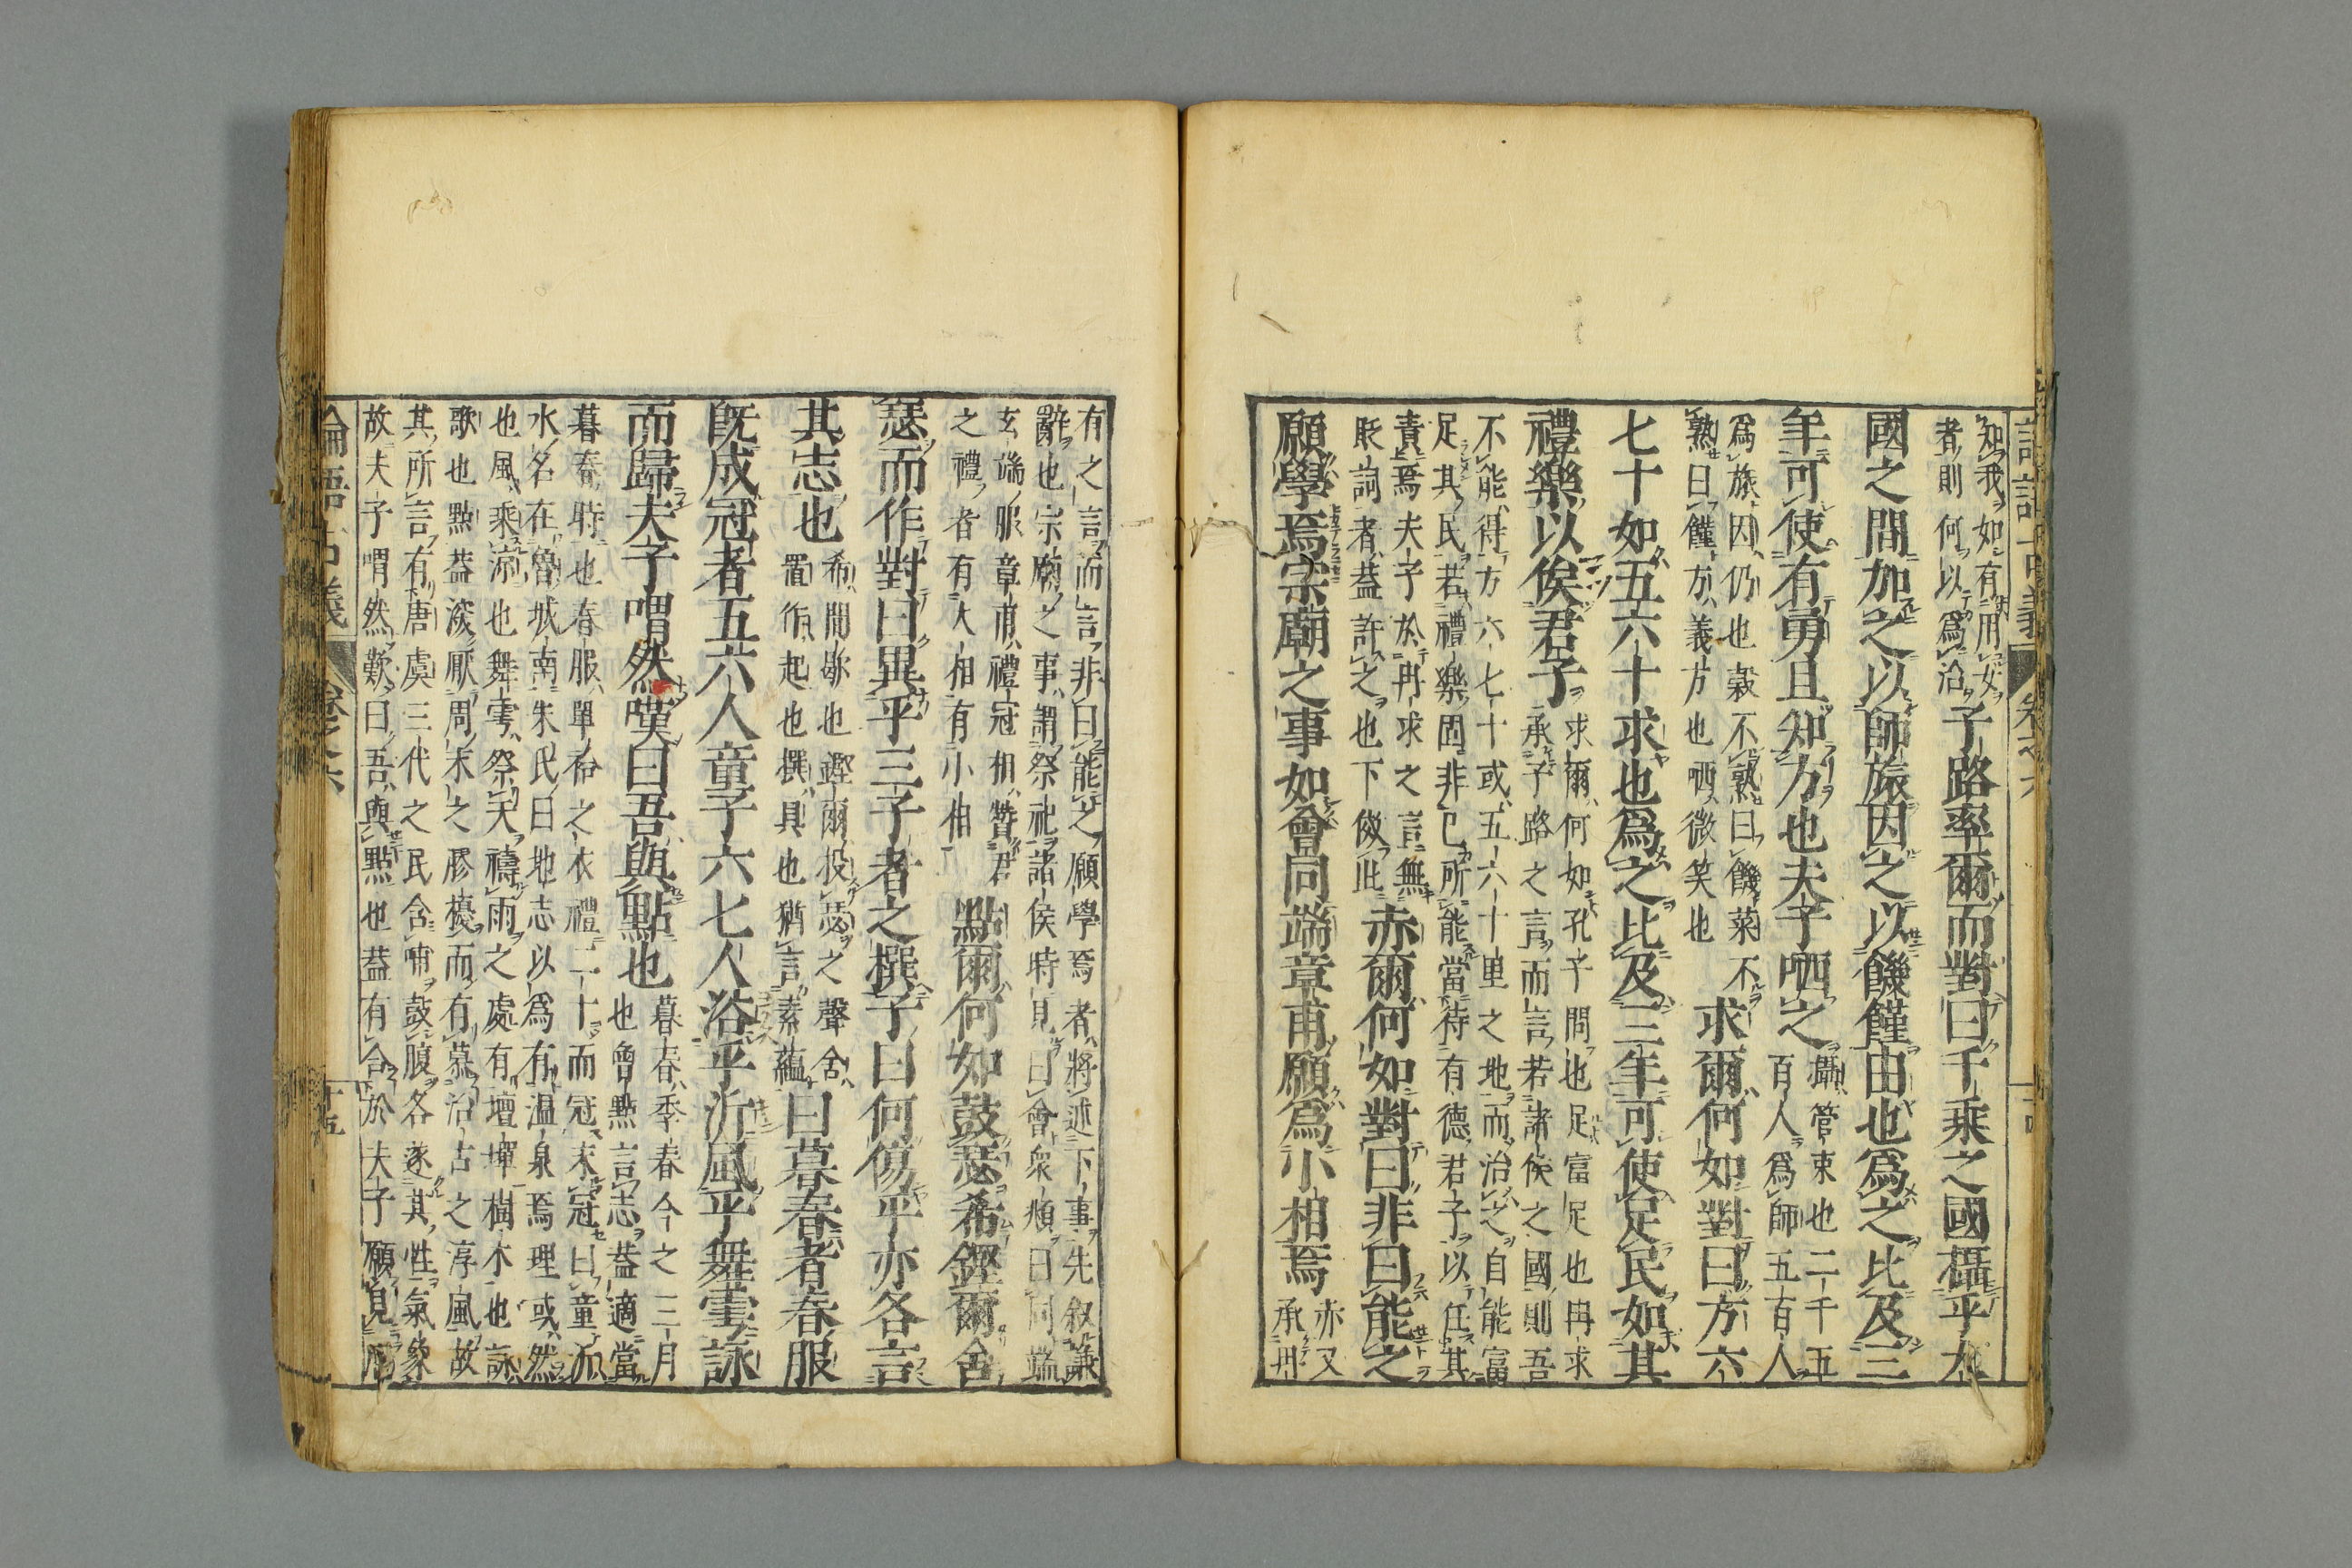 知我如有用女
者則何以爲治
子路率爾而對曰千乘之國攝乎大
國之間加之以師旅因之以饑饉由也爲之比及三
年可使有勇且知方也夫子哂之
攝管束也二千五
百人爲師五百人
爲旅因仍也穀不熟曰饑菜不
熟曰饉方義方也哂微笑也
求爾何如對曰方六
七十如五六十求也爲之比及三年可使足民如其
禮樂以俟君子
求爾何如孔子問也足富足也冉求
承子路之言而言若諸侯之國則吾
不能得方六七十或五六十里之地而治之自能富
足其民若禮樂固非已所能當待有德君子以任其
責焉夫子於冉求之言無
貶詞者蓋許之也下倣此
赤爾何如對曰非曰能之
願學焉宗廟之事如會同端章甫願爲小相焉
赤又
承冉
有之言而言非曰能之願學焉者將述下事先叙謙
辭也宗廟之事謂祭祀諸侯時見曰會衆頫曰同端
玄端服章甫禮冠相贊君
之禮者有大相有小相
點爾何如鼓瑟希鏗爾舍
瑟而作對曰異乎三子者之撰子曰何傷乎亦各言
其志也
希間歇也鏗爾投瑟之聲舍
置作起也撰具也猶言素蘊
曰暮春者春服
既成冠者五六人童子六七人浴乎沂風乎舞雩詠
而歸夫子喟然嘆曰吾與點也
暮春季春今之三月
也曾點言志蓋適當
暮春時也春服單袷之衣禮二十而冠未冠曰童沂
水名在魯城南朱氏曰地志以爲有温泉焉理或然
也風乘涼也舞雩祭天禱雨之處有壇墠樹木也詠
歌也點蓋深厭周末之膠擾而有慕治古之淳風故
其所言有唐虞三代之民含哺鼓腹各遂其性氣象
故夫子喟然歎曰吾與點也蓋有合於夫子願見
論語古義
卷之六
十五